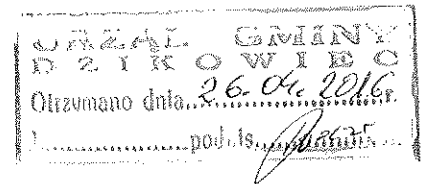 URZĄD GMINY
DZIKOWIEC
Otrzymano dnia 26.04.2016 r.
podpis